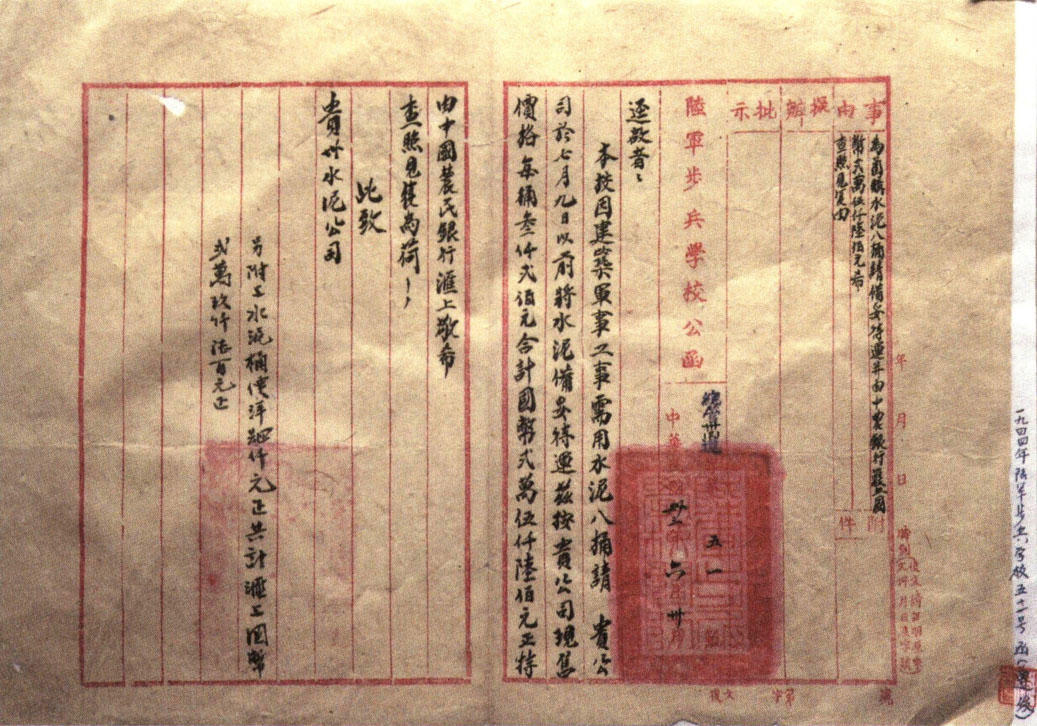 事由 擬辦 批示
為函購水泥八桶請備妥待運并由中農銀行滙上國
幣弍萬伍仟陸佰元希
查照見復由
附件
年 月 日
陸軍步兵學校公函
中華 卅三年六月卅日
五一
逕啟者、
本校因建築軍事工事需用水泥八桶請 貴公
司於七月九日以前將水泥備妥待運茲按貴公司現售
價格每桶叁仟弍佰元合計國幣弍萬伍仟陸佰元正特
由中國農民銀行滙上敬希
查照見復為荷、
此致
貴州水泥公司
另附上水泥桶洋肆仟元正共計滙上國幣
弍萬玖仟陸百元正
一九四四年陸軍步兵學校五十一号函